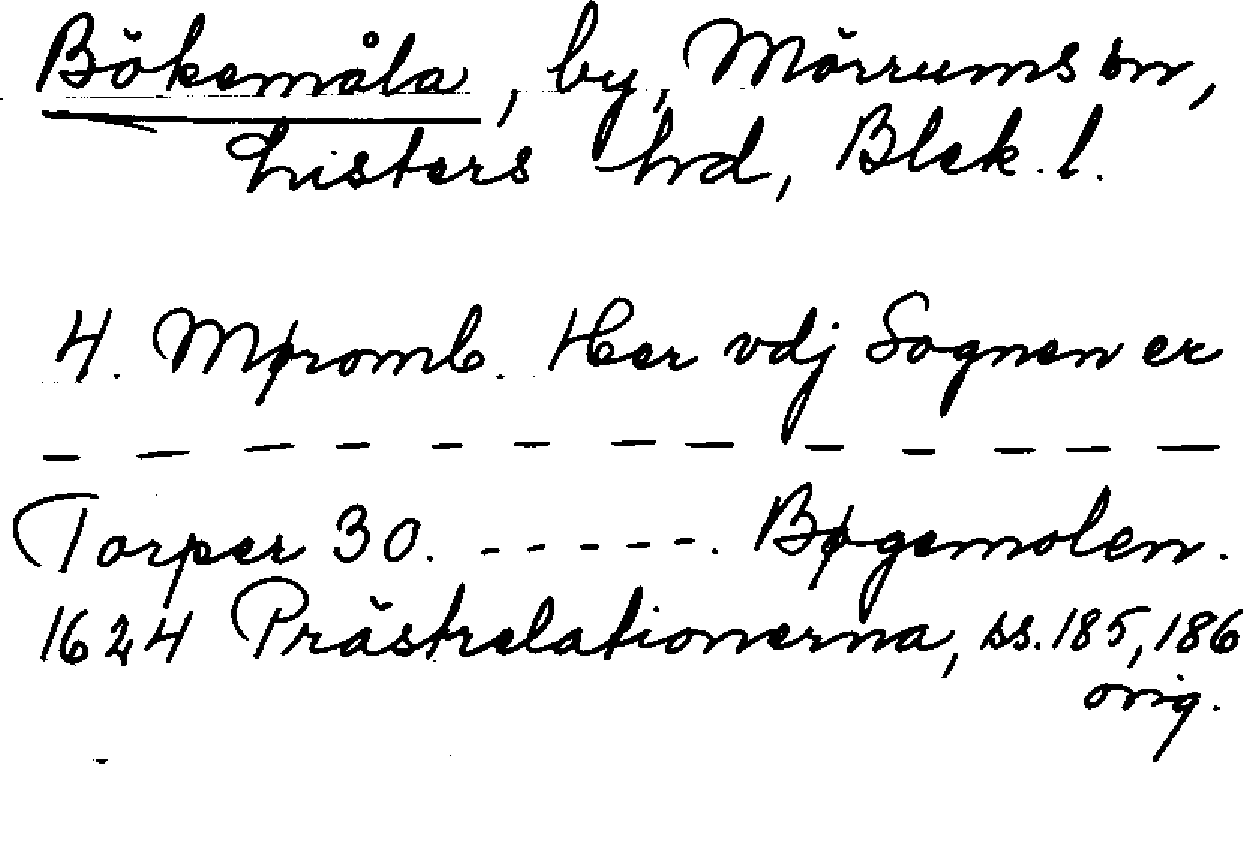 Bökemåla, by, Mörrums sn,
Listers hd, Blek. l.
4. Møromb. Her vdj Sognen er
— — — — — — — — — — — — —
Torper 30. - - - - -. Bøgemolen.
1624 Prästrelationerna, ss. 185, 186
orig.